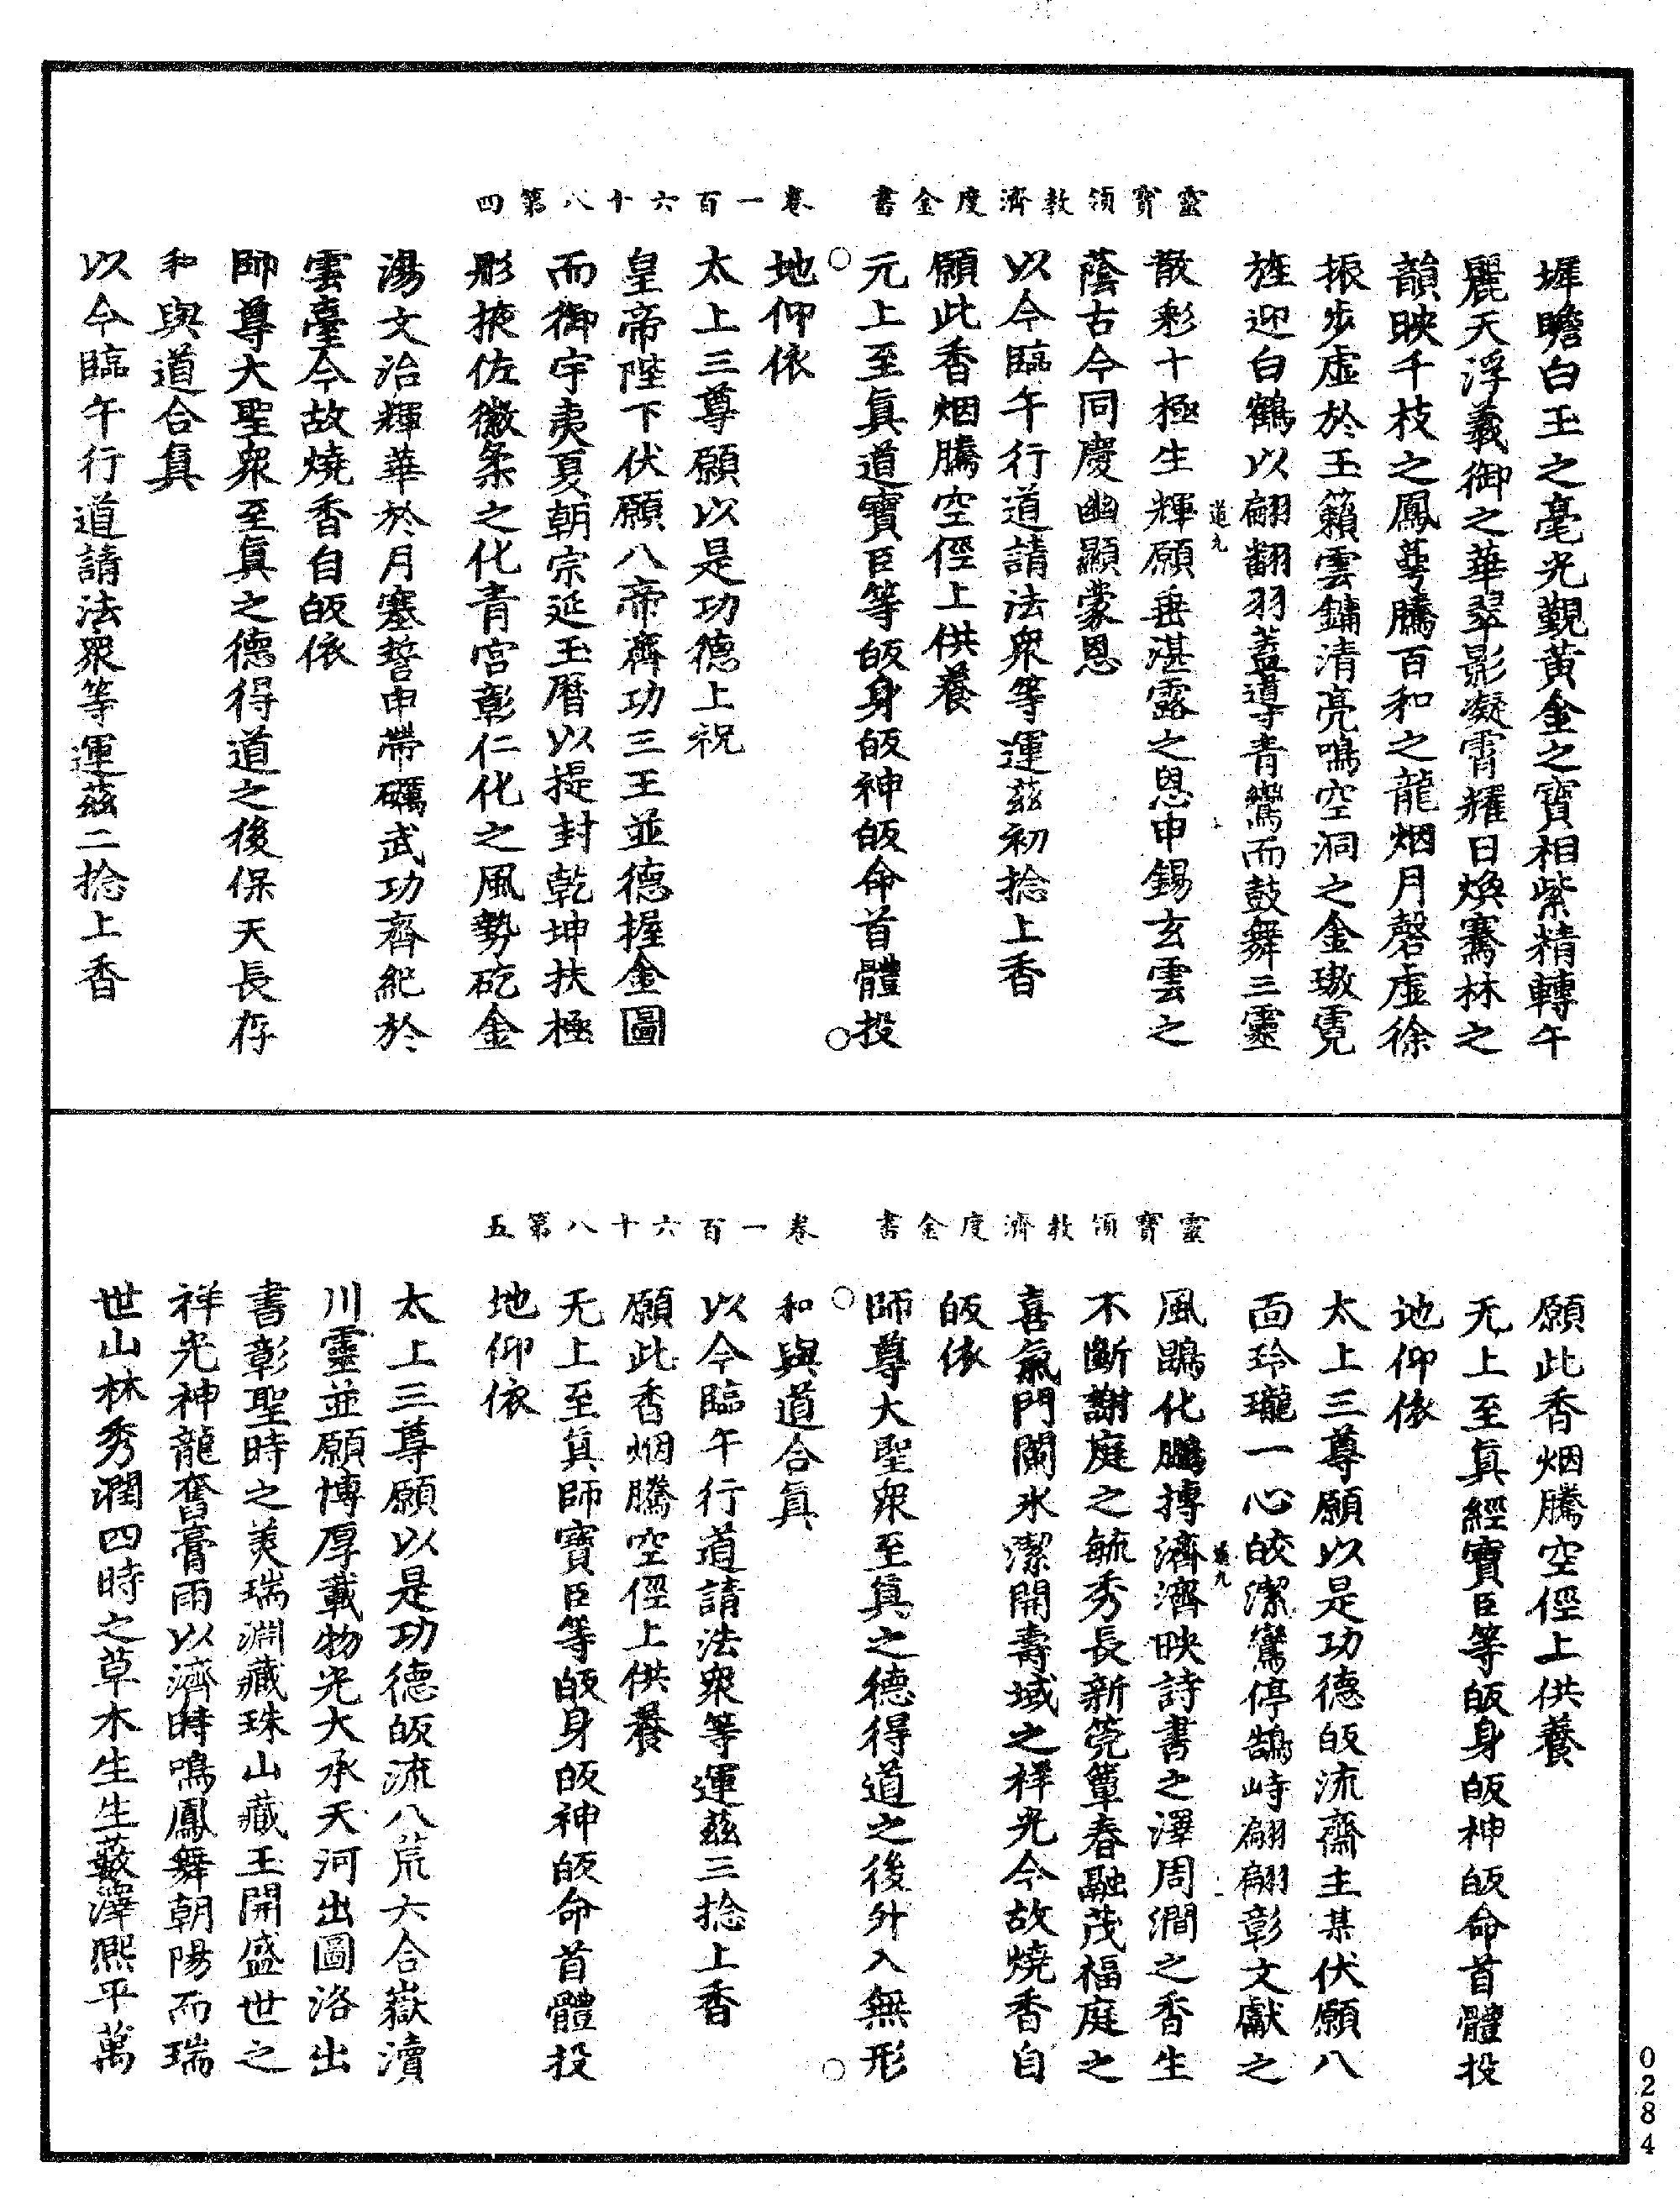 靈寶領教濟度金書　卷一百六十八第四
墀瞻白玉之毫光覲黃金之寶相紫精轉午
麗天浮羲御之華翠影凝霄耀日煥騫林之
韻映千枝之鳳蕚騰百和之龍烟月磬虛徐
振步虛於玉籟雲鏞清亮鳴空洞之金璈霓
旌迎白鶴以翩翻羽蓋導青鸞而鼓舞三靈
道九
散彩十極生輝願垂湛露之恩申錫玄雲之
蔭古今同慶幽顯蒙恩
以今臨午行道請法眾等運茲初捻上香
願此香烟騰空徑上供養
元上至真道寶臣等皈身皈神皈命首體投
地仰依
太上三尊願以是功德上祝
皇帝陛下伏願八帝齊功三王並德握金圖
而御宇夷夏朝宗延玉曆以提封乾坤扶極
彤掖佐徽柔之化青宮彰仁化之風勢矻金
湯文治輝華於月塞誓申帶礪武功齊紀於
雲臺今故燒香自皈依
師尊大聖眾至真之德得道之後保天長存
和與道合真
以今臨午行道請法眾等運茲二捻上香
靈寶領教濟度金書　卷一百六十八第五
願此香烟騰空徑上供養
无上至真經寶臣等皈身皈神皈命首體投
地仰依
太上三尊願以是功德皈流齋主某伏願八
面玲瓏一心皎潔鸞停鵠峙翩翩彰文獻之
道九
風鵾化鵬摶濟濟映詩書之澤周澗之香生
不斷謝庭之毓秀長新筦簟春融茂福庭之
喜氣門闌水潔開壽域之祥光今故燒香自
皈依
師尊大聖眾至真之德得道之後升入無形
和與道合真
以今臨午行道請法眾等運茲三捻上香
願此香烟騰空徑上供養
无上至真師寶臣等皈身皈神皈命首體投
地仰依
太上三尊願以是功德皈流八荒六合嶽瀆
川靈並願博厚載物光大承天河出圖洛出
書彰聖時之美瑞淵藏珠山藏玉開盛世之
祥光神龍奮膏雨以濟時鳴鳳舞朝陽而瑞
世山林秀潤四時之草木生生藪澤熙平萬
0284